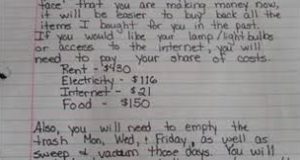 face" that you are making money now,
it will be easier to buy back all the
items I bought for you in the past.
If you would like your lamp/lightbulbs
or access to the internet, you will
need to pay your share of costs.
Rent - $430
Electricity - $116
Internet - $21
Food - $150
Also, you will need to empty the
trash Mon, Wed, + Friday, as well as
sweep + vacuum those days. You will